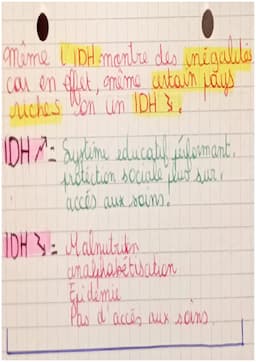 même l'IDH montre des inégalités
car en effet, même certain pays
riches on un IDH ↘.
IDH ↗ = Système éducatif performant.
protéction sociale plus sur.
accés aux soins.
IDH ↘ = Malnutrition
analphabétisation
Epidémie
Pas d'accès aux soins.